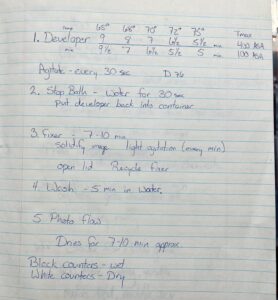 Temp 65° 68° 70° 72° 75° Tmax
1. Developer 9 8 7 6½ 5½ min 400 ASA
min 9½ 7 6½ 5½ 5 min 100 ASA
Agitate - every 30 sec D 76
2. Stop Bath - Water for 30 sec
put developer back into container
3. Fixer - 7-10 min
solidify image light agitation (every min)
open lid Recycle fixer
4. Wash - 5 min in water
5. Photo flow
Dries for 7-10 min approx
Black counters - wet
White counters - Dry